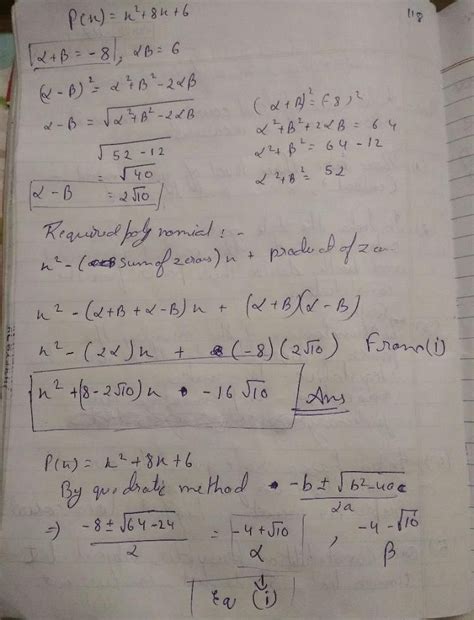 118
P(x) = x²+8x+6
α+β = -8, αβ = 6
(α-β)² = α²+β²-2αβ
α-β = √(α²+β²-2αβ)
√(52-12)
= √40
α-β = 2√10
(α+β)² = (-8)²
α²+β²+2αβ = 64
α²+β² = 64-12
α²+β² = 52
Required polynomial :-
x² - (sum of zeros)x + product of
x² - (α+β+α-β)x + (α+β)(α-β)
x² - (2α)x + (-8)(2√10) From (i)
x²+(8-2√10)x -16√10 Ans
P(x) = x²+8x+6
By quadratic method -b±√(b²-4ac)/2a
⇒ -8±√(64-24)/2 = -4+√10 , -4-√10
α β
Eq (i)